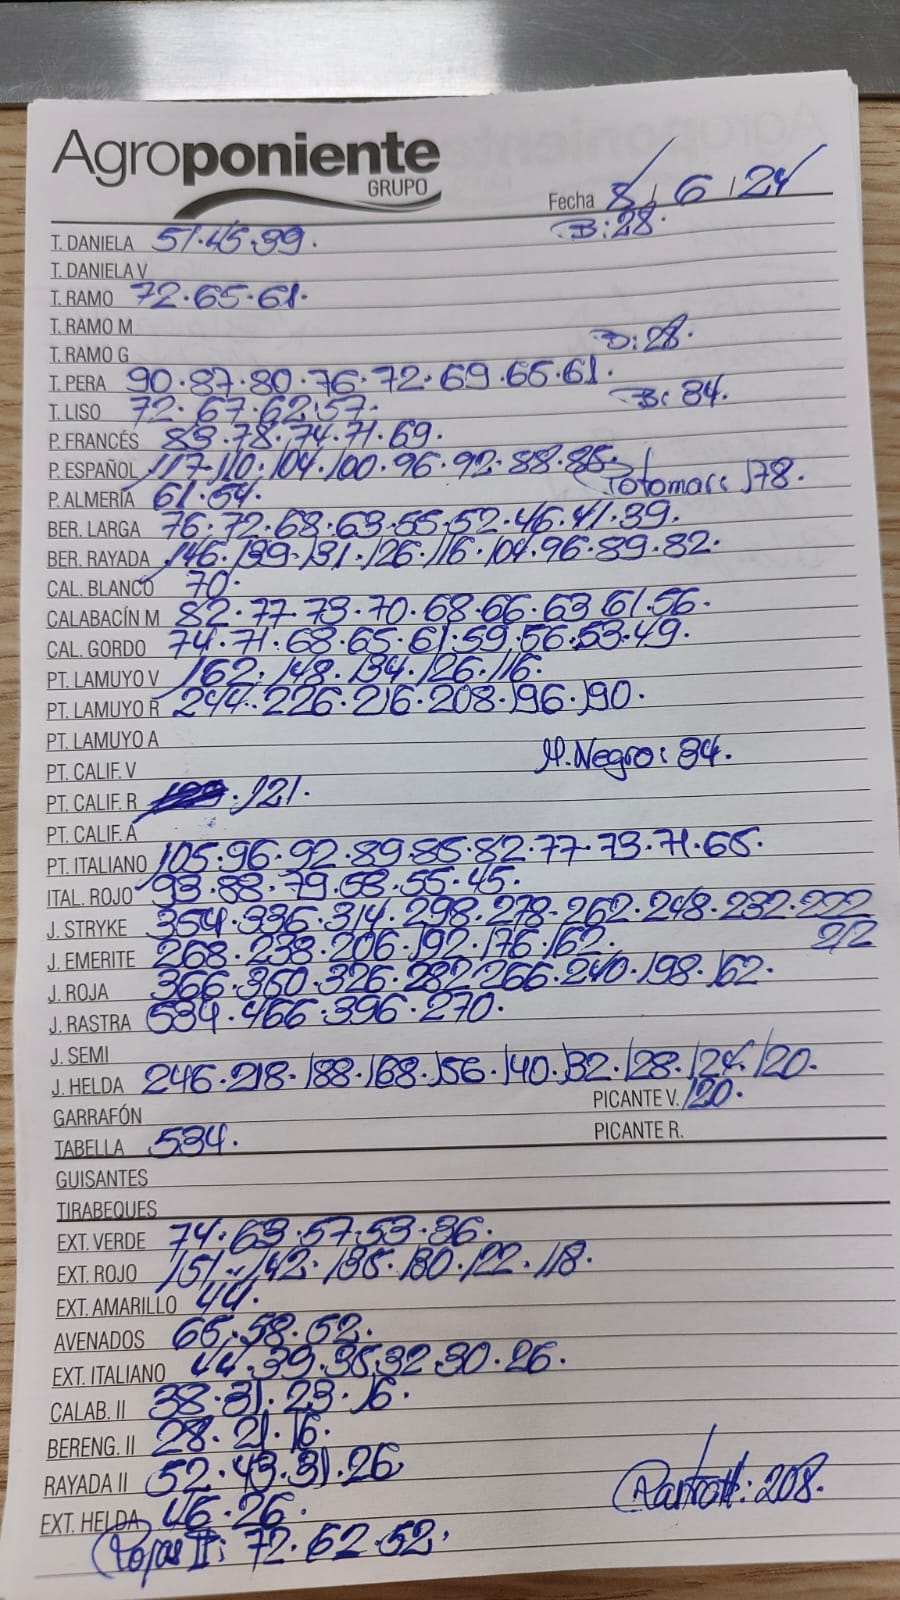 Agroponiente
GRUPO
Fecha 8/6/24
T. DANELA 51.45.39. B:28.
T. DANIELA V
T. RAMO 72.65.61.
T. RAMO M
T. RAMO G B:28.
T. PERA 90.87.80.76.72.69.65.61.
T. LISO 72.67.62.57. B:34.
P. FRANCÉS 83.78.74.71.69.
P. ESPAÑOL 117.110.104.100.96.92.88.85.
P. ALMERÍA 61.54. Totomar: 178.
BER. LARGA 76.72.68.63.55.52.46.41.39.
BER. RAYADA 146.139.131.126.116.104.96.89.82.
CAL. BLANCO 70.
CALABACÍN M 82.77.73.70.68.66.63.61.56.
CAL. GORDO 74.71.68.65.61.59.56.53.49.
PT. LAMUYO V 162.148.134.126.116.
PT. LAMUYO R 244.226.216.208.196.190.
PT. LAMUYO A
PT. CALIF. V M.Negro: 34.
PT. CALIF. R .121.
PT. CALIF. A
PT. ITALIANO 105.96.92.89.85.82.77.73.71.65.
ITAL. ROJO 93.88.79.68.55.45.
J. STRYKE 354.336.314.298.278.262.248.232.222
212
J. EMERITE 268.238.206.192.176.162.
J. ROJA 366.350.326.282.266.240.198.162.
J. RASTRA 534.466.396.270.
J. SEMI
J. HELDA 246.218.188.168.156.140.132.128.124.120.
GARRAFÓN PICANTE V. 120.
TABELLA 534. PICANTE R.
GUISANTES
TIRABEQUES
EXT. VERDE 74.63.57.53.36.
EXT. ROJO 151.142.135.130.122.118.
EXT. AMARILLO 44.
AVENADOS 65.58.52.
EXT. ITALIANO 44.39.35.32.30.26.
CALAB. II 38.31.23.16.
BERENG. II 28.21.16.
RAYADA II 52.43.31.26.
EXT. HELDA 46.26. : 208.
Rojas II: 72.62.52.